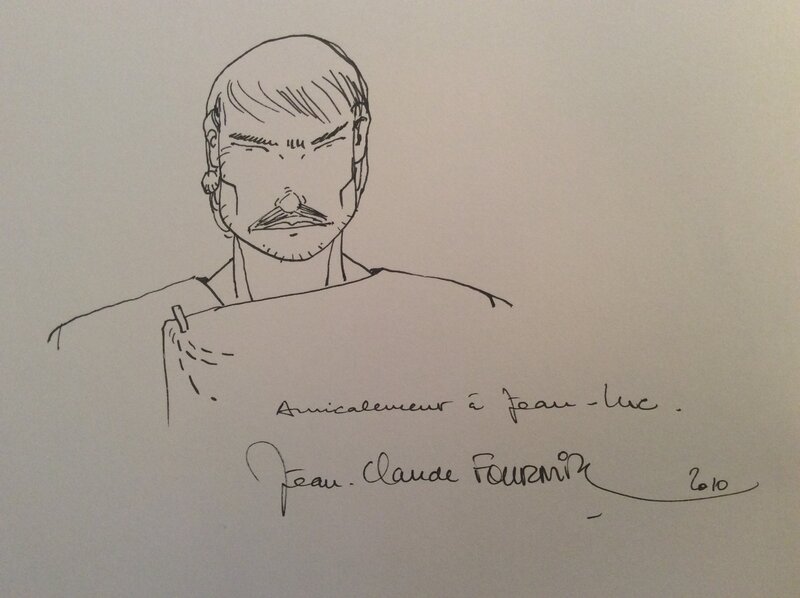 Amicalement à Jean-Luc.
Jean-Claude FOURNIER 2010